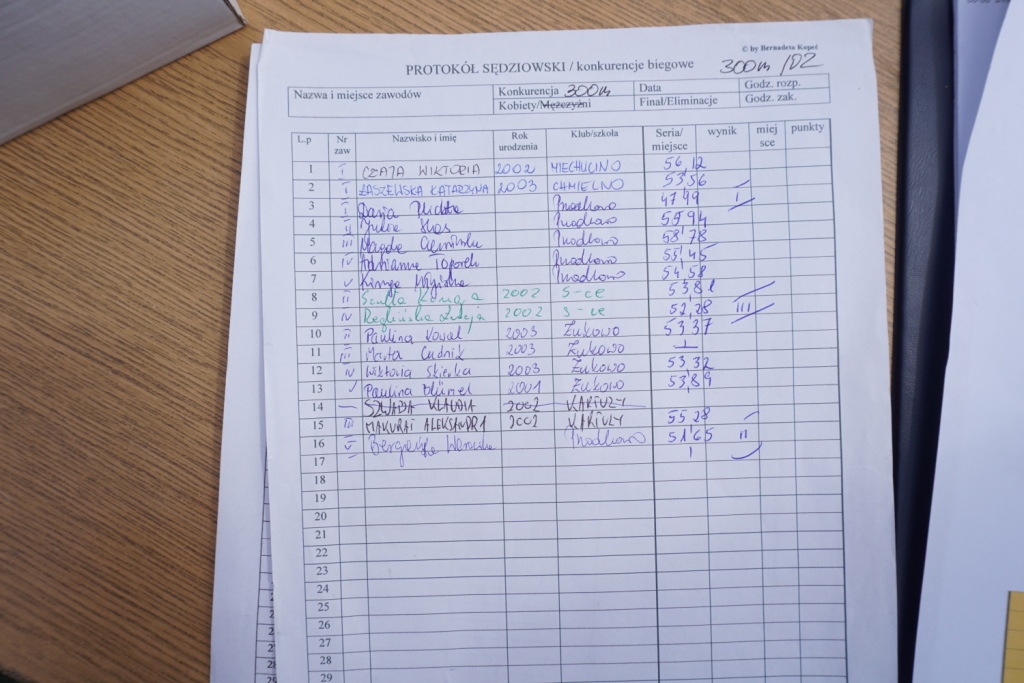 © by Bernadeta Kopeć
PROTOKÓŁ SĘDZIOWSKI / konkurencje biegowe 300m /DZ
Nazwa i miejsce zawodów Konkurencja 300m Data Godz. rozp.
Kobiety/Mężczyźni Finał/Eliminacje Godz. zak.
L.p Nr zaw Nazwisko i imię Rok urodzenia Klub/szkoła Seria/miejsce wynik miejsce punkty
1 I CZAJA WIKTORIA 2002 MIECHUCINO 56,12
2 I ŁASZEWSKA KATARZYNA 2003 CHMIELNO 53,56
3 I Daria 47,99 I
4 II Julia 55,94
5 III Magda 58,78
6 IV Adrianna Toporek 55,45
7 V Kinga 54,58
8 II Kinga 2002 S-ce 53,81
9 IV 2002 S-ce 52,28 III
10 II Paulina Kowal 2003 Żukowo 53,37
11 III Marta Cudnik 2003 Żukowo
12 IV Wiktoria Skierka 2003 Żukowo 53,32
13 V Paulina Blümel 2001 Żukowo 53,89
14 — SZWABA KLAUDIA 2002 KARTUZY
15 III MAKURAT ALEKSANDRA 2002 KARTUZY 55,28
16 V Weronika 51,65 II
17
18
19
20
21
22
23
24
25
26
27
28
29